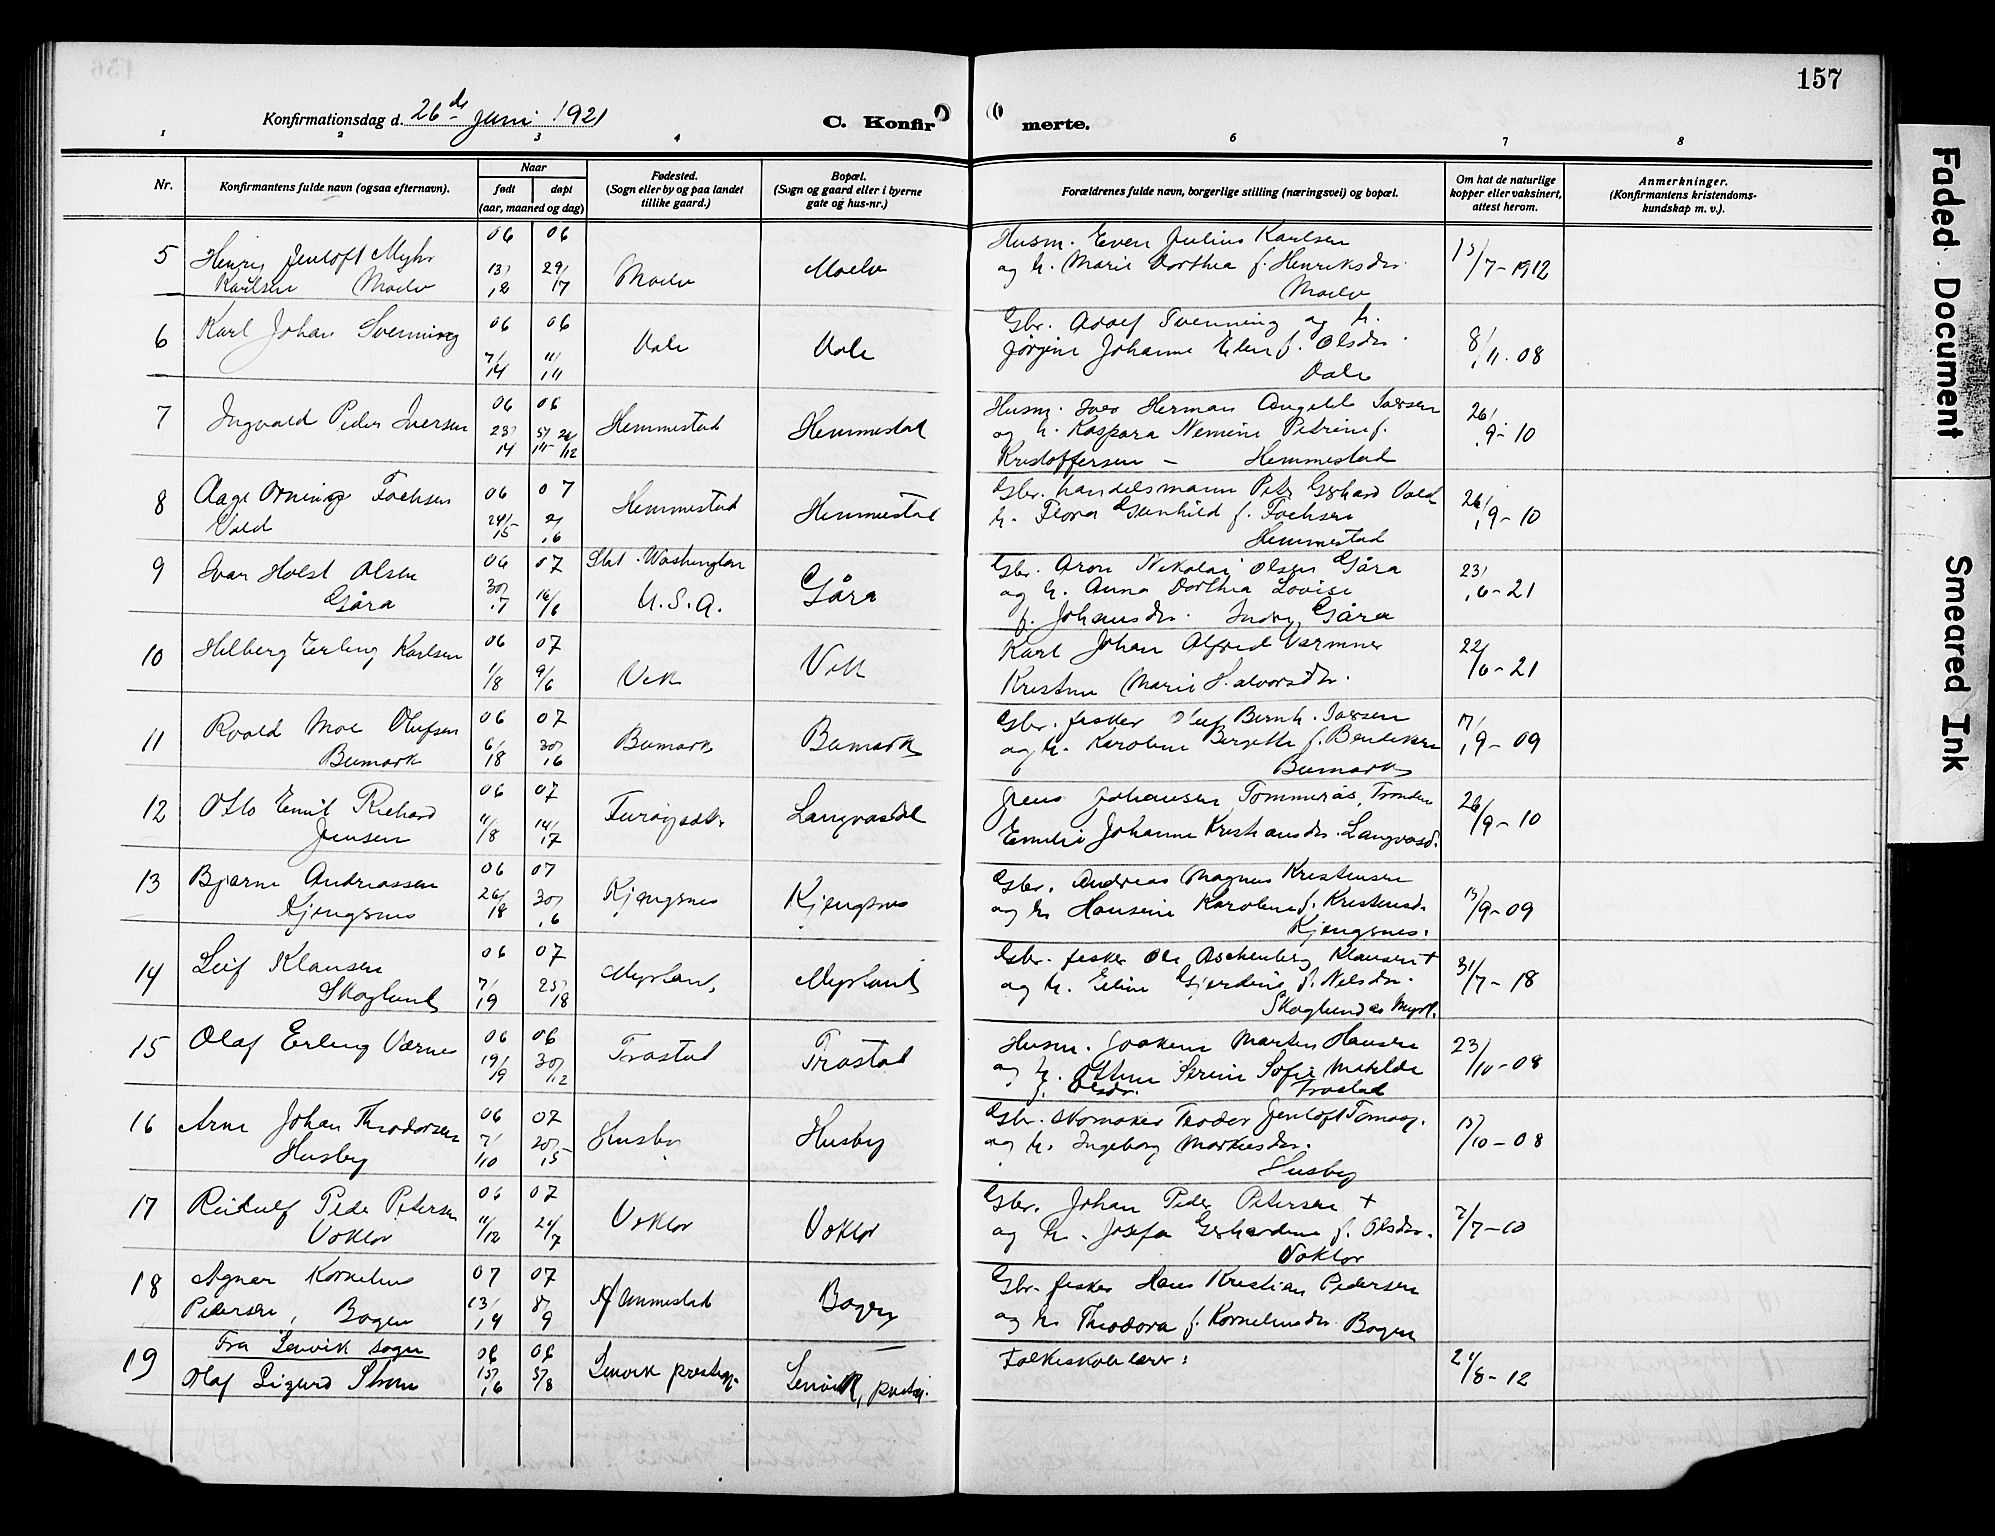 157
Konfirmationsdag d. 26 de Juni 1921
C. Konfirmerte.
1 2 3 4 5 6 7 8
Nr.
Konfirmantens fulde navn (ogsaa efternavn).
Naar
født døpt
(aar, maaned og dag)
Fødested.
(Sogn eller by og paa landet
tillike gaard.)
Bopæl.
(Sogn og gaard eller i byerne
gate og hus-nr.)
Forældrenes fulde navn, borgerlige stilling (næringsvei) og bopæl.
Om hat de naturlige
kopper eller vaksinert,
attest herom.
Anmerkninger.
(Konfirmantens kristendoms-
kundskap m. v.).
5 Henry Jentoft Myhr 06 06 Husm. Even Julius Karlsen
Karlsen Moelv 13/12 29/17 Moelv Moelv og h. Marie Dorthea f. Henriksdr. 15/7-1912
Moelv
6 Karl Johan Svenning 06 06 Vole Vole Gbr. Adolf Svenning og h.
7/14 11/11 Jørgine Johanne Elene f. Olsdr. 8/11-08
Vole
7 Ingvald Peder Iversen 06 06 Hemmestad Hemmestad Husm. Iver Herman Angell Iversen
23/14 5/11 26/12 og h. Kaspara Nemine Petrine f. 26/9-10
Kristoffersen - Hemmestad
8 Aage Orning Fochsen 06 07 Hemmestad Hemmestad Gbr. handelsmann Petr Gerhard Vold
Vold 24/15 2/16 h. Flora Gunhild f. Fochsen 26/9-10
Hemmestad
9 Ivar Holst Olsen 06 07 Stat. Washington Gåra Gbr. Aron Nikolai Olsen Gåra
Gåra 30/7 16/6 U.S.A. og h. Anna Dorthea Lovise 23/6-21
f. Johansdr. Indre Gåra
10 Hilberg Erling Karlsen 06 07 Vik Vik Karl Johan Alfred
1/8 9/6 Kristine Marie Halvorsdr. 22/6-21
11 Roald Moe Olufsen 06 07 Bumark Bumark Gbr. fisker Oluf Bernh. Iversen
Bumark 6/18 30/16 og h. Karoline Bergitte f. Bendiksen 7/9-09
Bumark
12 Otto Emil Richard 06 07 Langvasdal Jens Johansen Tommerås, Tronden
Jensen 11/8 14/17 Emilie Johanne Kristiansdr. Langvasd. 26/9-10
13 Bjarne Andreassen 06 07 Kjengsnes Kjengsnes Gbr. Andreas Magnus Kristensen
Kjengsnes 26/18 30/6 og h. Hansine Karoline f. Kristensd. 13/9-09
Kjengsnes.
14 Leif Klausen 06 07 Myrland, Myrland Gbr. fisker Ole Aschenberg Klausen +
Skoglund 7/19 25/18 og h. Eline Gjerdine f. Nelsdr. 31/7-18
Skoglund es Myrl.
15 Olaf Erling Værnes 06 06 Trastad Trastad Husm. Joakim Martin Hansen
19/9 30/12 og h. Othine Serine Sofie Matilde 23/10-08
f. Olsdr. Trastad
16 Arne Johan Theodorsen 06 07 Husby Husby Gbr. skomaker Teodor Jentoft Tomasg.
Husby 7/10 20/15 og h. Ingeborg Markusdr. 13/10-08
Husby
17 Reidulf Peder Petersen 06 07 Voktor Voktor Gbr. Johan Peder Petersen +
Voktor 11/12 21/7 og h. Josefa Gerhardine f. Olsdr. 2/7-10
Voktor
18 Agnar Kornelius 07 07 Hemmestad Bogen Gbr. fisker Hans Kristian Pedersen
Pedersen, Bogen 13/14 8/9 og h. Theodora f. Kornelinsdr. Bogen
Fra Lenvik sogn
19 Olaf Sigurd Strøm 06 06 Lenvik prestegj. Lenvik, prestegj. Folkeskolelærer: 21/8-12
15/16 5/8
Faded Document
Smeared Ink